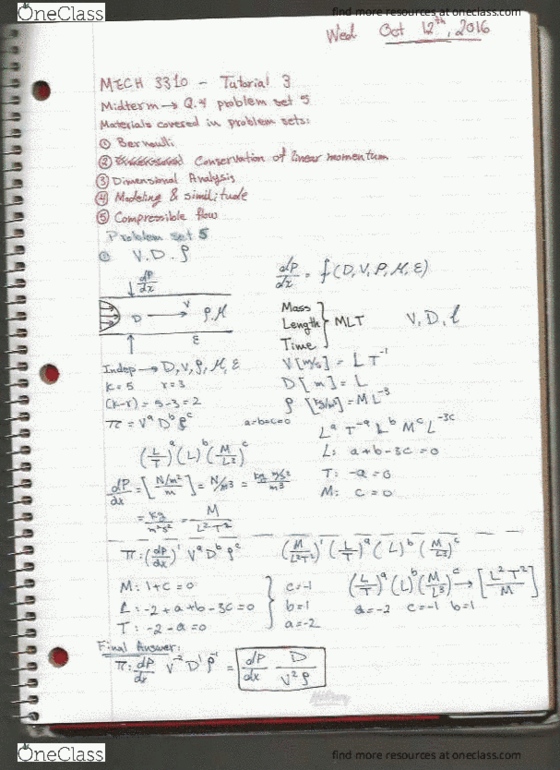 OneClass
find more resources at oneclass.com
Wed Oct 12th, 2016
MECH 3310 - Tutorial 3
Midterm → Q.4 problem set 5
Materials covered in problem sets:
① Bernoulli
② Conservation of linear momentum
③ Dimensional Analysis
④ Modeling & similitude
⑤ Compressible flow
Problem set 5
① V. D. ρ
dP/dx = f(D, V, ρ, μ, ε)
dP/dx
D → V ρ, μ
ε
Mass
Length } MLT V, D, ρ
Time
V [m/s] = L T⁻¹
D [m] = L
ρ [kg/m³] = M L⁻³
Indep → D, V, ρ, μ, ε
k = 5 r = 3
(k-r) = 5-3 = 2
π = Vᵃ Dᵇ ρᶜ a=b=c=0
Lᵃ T⁻ᵃ Lᵇ Mᶜ L⁻³ᶜ
(L/T)ᵃ (L)ᵇ (M/L³)ᶜ
L: a+b-3c = 0
T: -a = 0
M: c = 0
dP/dx = [N/m²/m] = N/m³ = kg m/s²/m³
= kg/m²s² = M/L²T²
π: (dP/dx)¹ Vᵃ Dᵇ ρᶜ (M/L²T²)¹ (L/T)ᵃ (L)ᵇ (M/L³)ᶜ
M: 1+c = 0
L: -2+a+b-3c = 0
T: -2-a = 0
} c=-1
b=1
a=-2
(L/T)ᵃ (L)ᵇ (M/L³)ᶜ → [L²T²/M]
a=-2 c=-1 b=1
Final Answer:
π: dP/dx V⁻² D¹ ρ⁻¹ = dP/dx D/V²ρ
Hilroy
OneClass
find more resources at oneclass.com